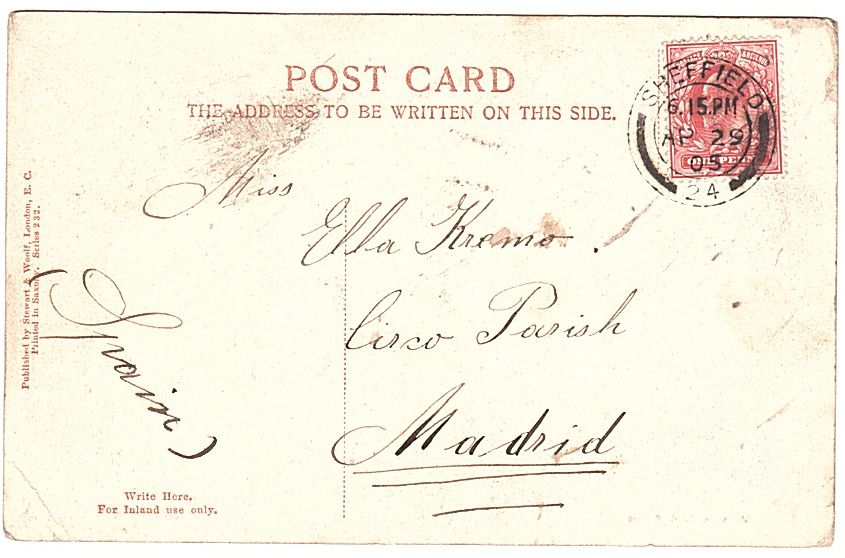 POST CARD
THE ADDRESS TO BE WRITTEN ON THIS SIDE.
SHEFFIELD
6.15.PM
AP 29
05
24
ONE PENNY
Miss
Ella Kremo.
Circo Parish
Madrid
Spain
Published by Stewart & Woolf, London, E. C.
Printed in Saxony. Series 232.
Write Here.
For Inland use only.